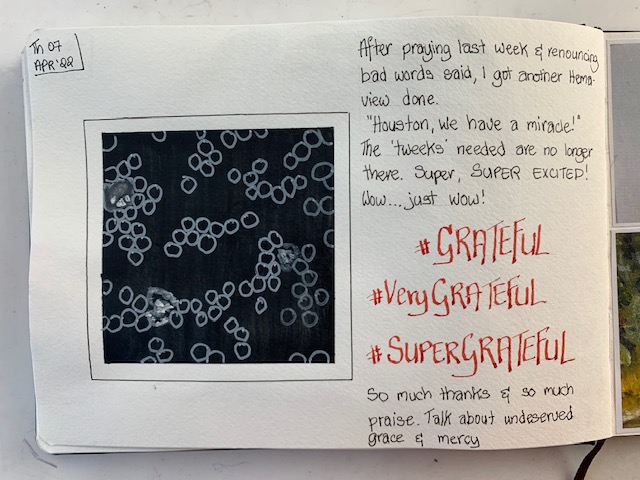 Th 07
APR '22
After praying last week & renouncing
bad words said, I got another Hema-
view done.
"Houston, we have a miracle!"
The 'tweeks' needed are no longer
there. Super, SUPER EXCITED!
Wow...just wow!
#GRATEFUL
#VeryGRATEFUL
#SUPERGRATEFUL
So much thanks & so much
praise. Talk about undeserved
grace & mercy